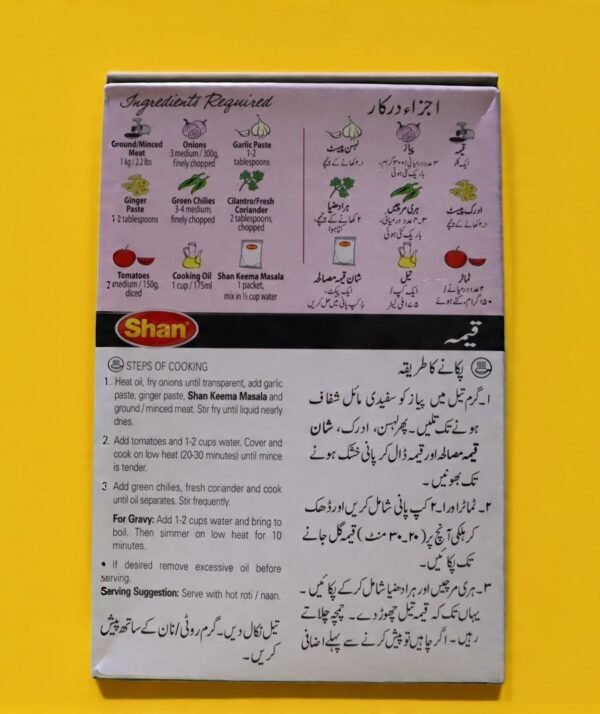 Ingredients Required
Ground/Minced
Meat
1 kg / 2.2 lbs
Onions
3 medium / 300g,
finely chopped
Garlic Paste
1-2
tablespoons
Ginger
Paste
1-2 tablespoons
Green Chilies
3-4 medium,
finely chopped
Cilantro/Fresh
Coriander
2 tablespoons,
chopped
Tomatoes
2 medium / 150g,
diced
Cooking Oil
1 cup / 175ml
Shan Keema Masala
1 packet,
mix in ½ cup water
اجزاء درکار
قیمہ
ایک کلو
پیاز
۳ عدد درمیانی/۳۰۰ گرام،
باریک کٹی ہوئی
لہسن پیسٹ
۱-۲ کھانے کے چمچے
ادرک پیسٹ
۱-۲ کھانے کے چمچے
ہری مرچیں
۳-۴ عدد درمیانی،
باریک کٹی ہوئی
ہرا دھنیا
۲ کھانے کے چمچے
کٹا ہوا
ٹماٹر
۲ عدد درمیانے/
۱۵۰ گرام، کٹے ہوئے
تیل
ایک کپ/
۱۷۵ ملی لیٹر
شان قیمہ مصالحہ
ایک پیکٹ،
½ کپ پانی میں حل کریں
Shan
قیمہ
STEPS OF COOKING
1. Heat oil, fry onions until transparent, add garlic
paste, ginger paste, Shan Keema Masala and
ground / minced meat. Stir fry until liquid nearly
dries.
2. Add tomatoes and 1-2 cups water. Cover and
cook on low heat (20-30 minutes) until mince
is tender.
3. Add green chilies, fresh coriander and cook
until oil separates. Stir frequently.
For Gravy: Add 1-2 cups water and bring to
boil. Then simmer on low heat for 10
minutes.
• If desired remove excessive oil before
serving.
Serving Suggestion: Serve with hot roti / naan.
پکانے کا طریقہ
۱۔ گرم تیل میں پیاز کو سفیدی مائل شفاف
ہونے تک تلیں۔ پھر لہسن، ادرک، شان
قیمہ مصالحہ اور قیمہ ڈال کر پانی خشک ہونے
تک بھونیں۔
۲۔ ٹماٹر اور ۱-۲ کپ پانی شامل کریں اور ڈھک
کر ہلکی آنچ پر (۲۰-۳۰ منٹ) قیمہ گل جانے
تک پکائیں۔
۳۔ ہری مرچیں اور ہرا دھنیا شامل کر کے پکائیں۔
یہاں تک کہ قیمہ تیل چھوڑ دے۔ چمچہ چلاتے
رہیں۔ اگر چاہیں تو پیش کرنے سے پہلے اضافی
تیل نکال دیں۔ گرم روٹی/نان کے ساتھ پیش
کریں۔